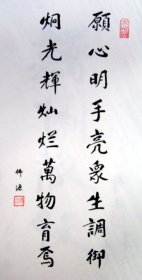 願心明手亮衆生調御
炯光輝灿烂萬物育焉
佛源